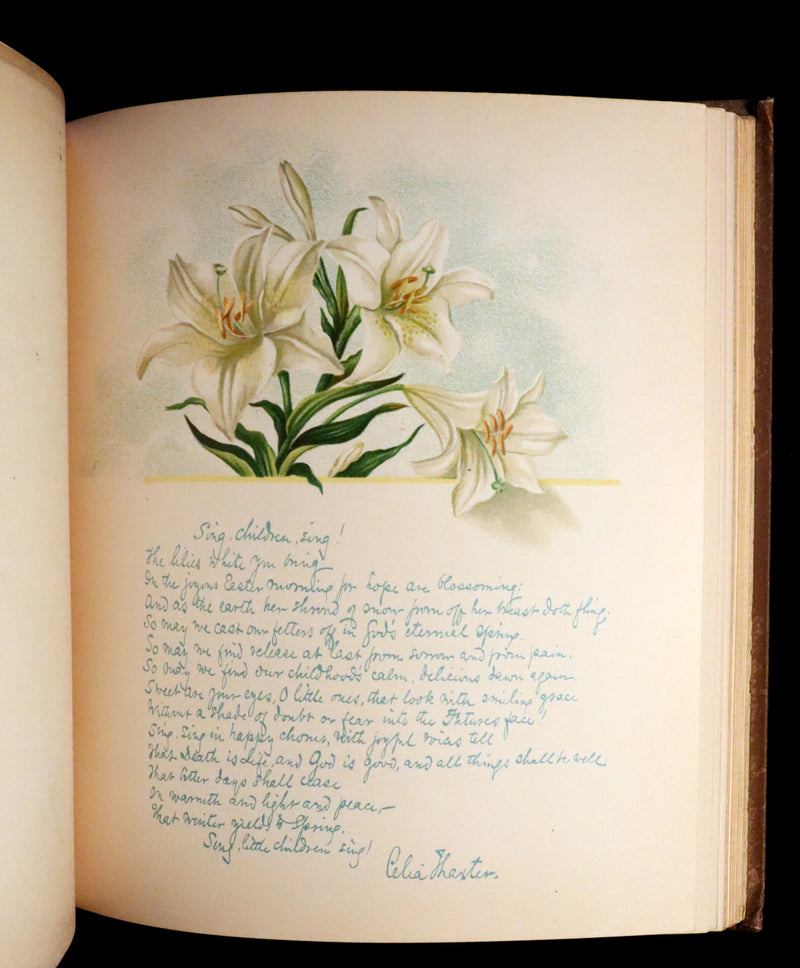 Sing, children, sing!
The lilies white you bring
In the joyous Easter morning for hope are blossoming;
And as the earth her shroud of snow from off her breast doth fling,
So may we cast our fetters off in God's eternal spring.
So may we find release at last from sorrow and from pain,
So may we find our childhood's calm, delicious dawn again.
Sweet are your eyes, O little ones, that look with smiling grace
Without a shade of doubt or fear into the Future's face!
Sing, sing in happy chorus, with joyful voices tell
That Death is Life, and God is good, and all things shall be well.
That bitter days shall cease
In warmth and light and peace,—
That winter yields to Spring,
Sing, little children sing!
Celia Thaxter.